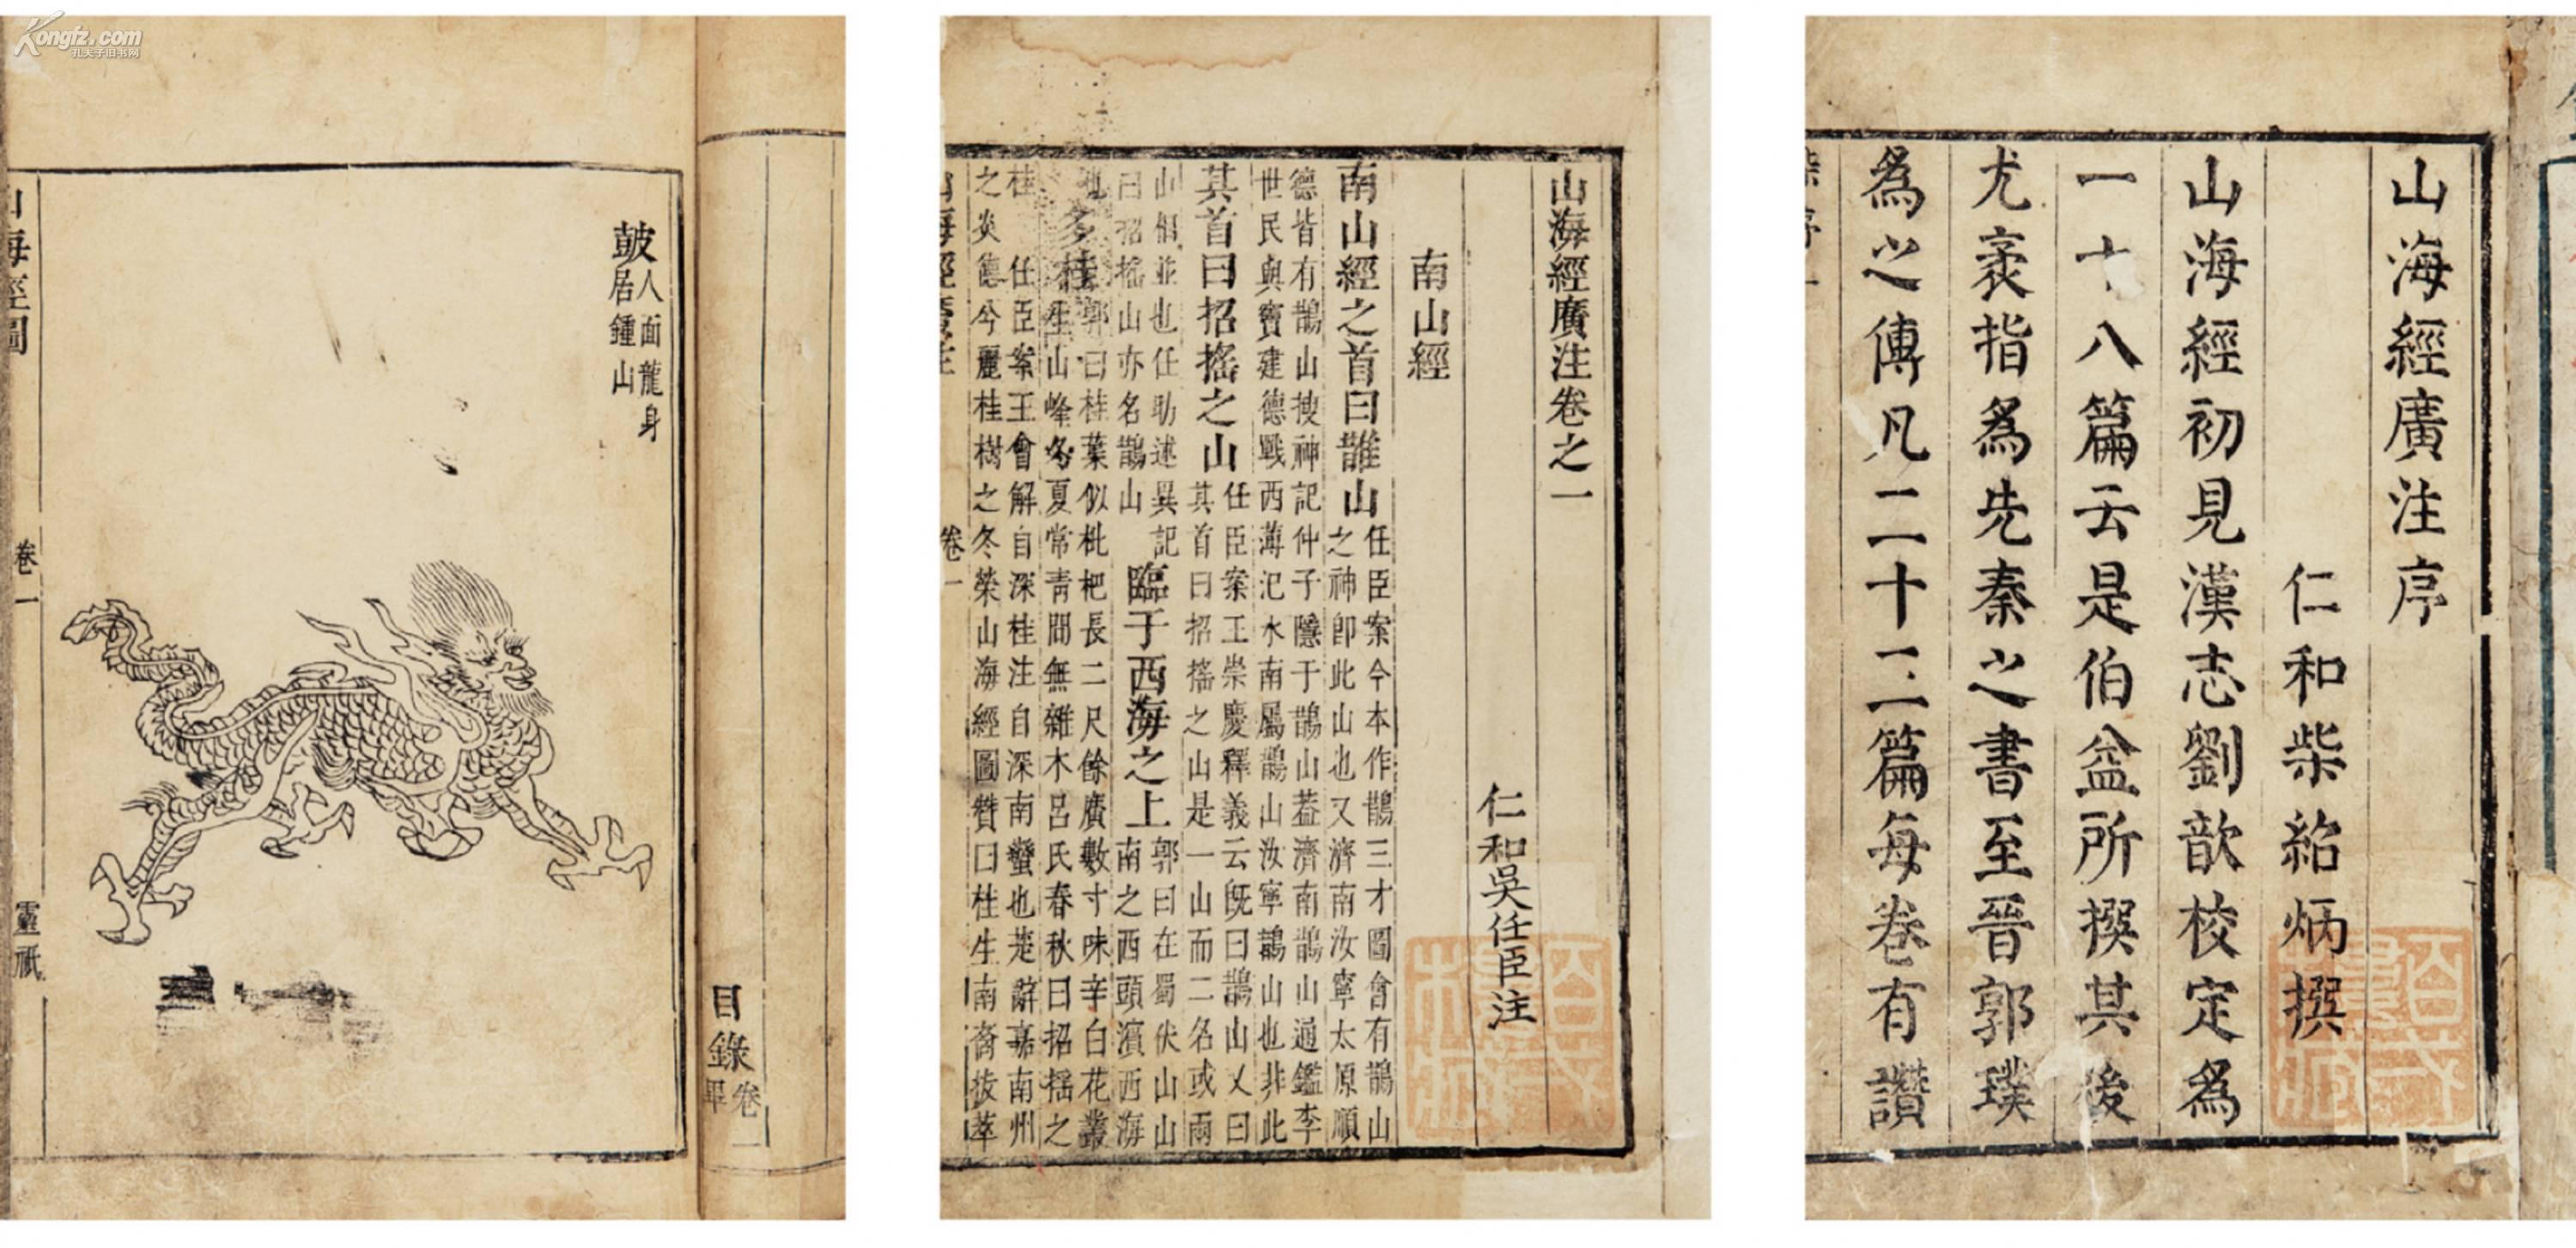 Kongfz.com
孔夫子旧书网
山海經廣注序
仁和柴紹炳撰
山海經初見漢志劉歆校定爲
一十八篇云是伯益所撰其後
尤袤指爲先秦之書至晉郭璞
爲之傳凡二十三篇每卷有讚
山海經廣注卷之一
仁和吳任臣注
南山經
南山經之首曰䧿山
任臣案今本作鵲三才圖會有鵲山
之神卽此山也又濟南汝寧太原順
德皆有鵲山搜神記仲子隱于鵲山葢濟南鵲山通鑑李
世民與竇建德戰西薄汜水南屬鵲山汝寧鵲山也非此
其首曰招搖之山
任臣案王崇慶釋義云旣曰鵲山又曰
其首曰招搖之山是一山而二名或兩
山相並也任昉述異記
曰招搖山亦名鵲山
臨于西海之上
郭曰在蜀伏山山
南之西頭濱西海
也
多桂
郭曰桂葉似枇杷長二尺餘廣數寸味辛白花叢
生山峰冬夏常青間無雜木呂氏春秋曰招搖之
桂 任臣案王會解自深桂注自深南蠻也楚辭嘉南州
之炎德兮麗桂樹之冬榮山海經圖贊曰桂生南裔拔萃
卷一
目錄
卷一
畢
鼓
人面龍身
居鍾山
山海經圖
卷一
靈祇